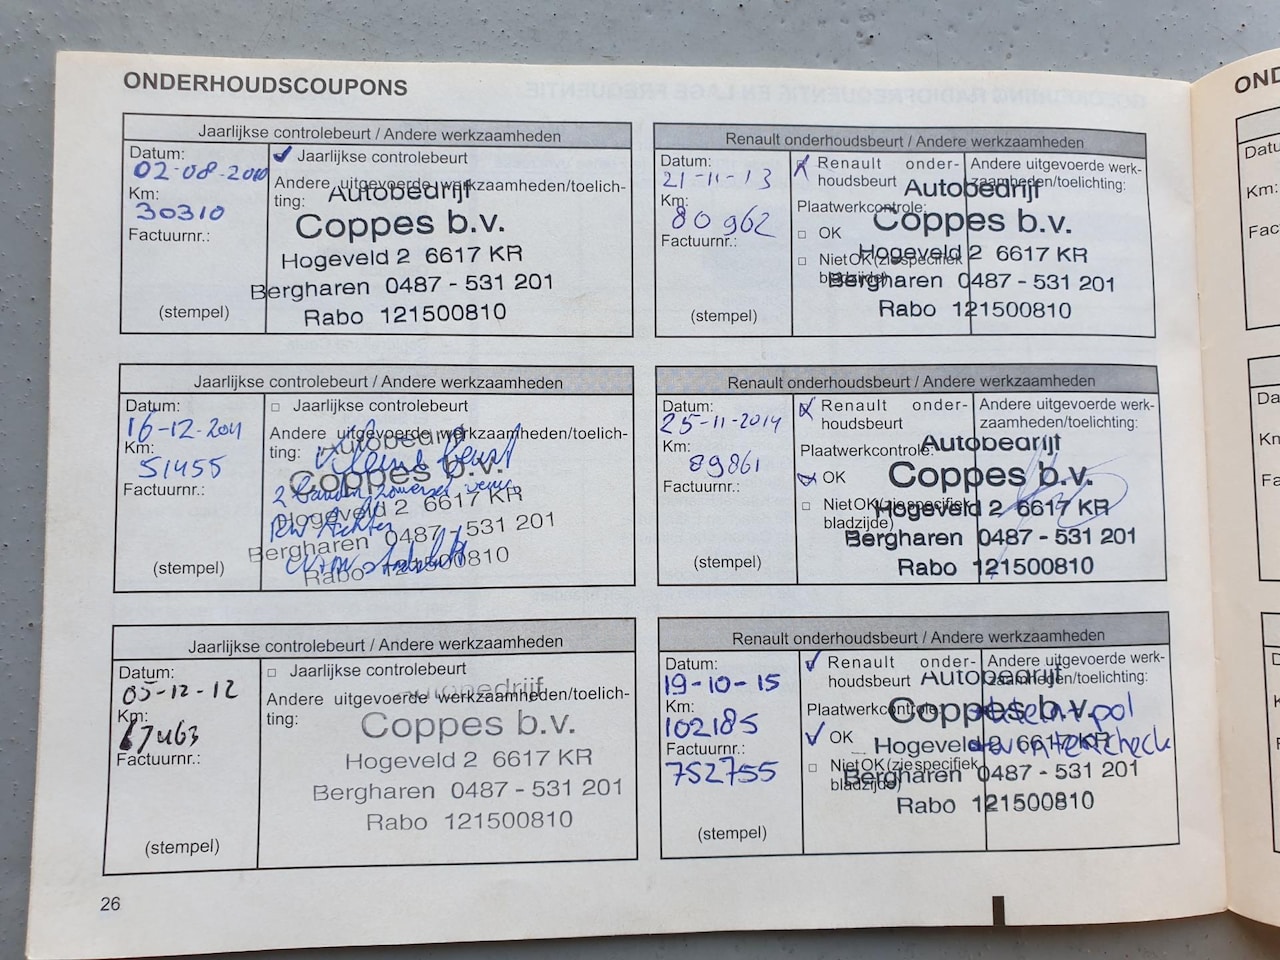 ONDERHOUDSCOUPONS
Jaarlijkse controlebeurt / Andere werkzaamheden
Datum:
02-08-2010
Km:
30310
Factuurnr.:
(stempel)
Jaarlijkse controlebeurt
Andere uitgevoerde werkzaamheden/toelich-
ting:
Autobedrijf
Coppes b.v.
Hogeveld 2 6617 KR
Bergharen 0487 - 531 201
Rabo 121500810
Jaarlijkse controlebeurt / Andere werkzaamheden
Datum:
16-12-2011
Km:
51455
Factuurnr.:
(stempel)
Jaarlijkse controlebeurt
Andere uitgevoerde werkzaamheden/toelich-
ting:
Autobedrijf
Kleine beurt
Coppes b.v.
2 banden
Hogeveld 2 6617 KR
Achter
Bergharen 0487 - 531 201
Rabo 121500810
Jaarlijkse controlebeurt / Andere werkzaamheden
Datum:
05-12-12
Km:
67463
Factuurnr.:
(stempel)
Jaarlijkse controlebeurt
Andere uitgevoerde werkzaamheden/toelich-
ting:
Autobedrijf
Coppes b.v.
Hogeveld 2 6617 KR
Bergharen 0487 - 531 201
Rabo 121500810
Renault onderhoudsbeurt / Andere werkzaamheden
Datum:
21-11-13
Km:
80962
Factuurnr.:
(stempel)
Renault onder-
houdsbeurt
Plaatwerkcontrole:
OK
Niet OK (zie specifiek
bladzijde)
Andere uitgevoerde werk-
zaamheden/toelichting:
Autobedrijf
Coppes b.v.
Hogeveld 2 6617 KR
Bergharen 0487 - 531 201
Rabo 121500810
Renault onderhoudsbeurt / Andere werkzaamheden
Datum:
25-11-2014
Km:
89861
Factuurnr.:
(stempel)
Renault onder-
houdsbeurt
Plaatwerkcontrole:
OK
Niet OK (zie specifiek
bladzijde)
Andere uitgevoerde werk-
zaamheden/toelichting:
Autobedrijf
Coppes b.v.
Hogeveld 2 6617 KR
Bergharen 0487 - 531 201
Rabo 121500810
Renault onderhoudsbeurt / Andere werkzaamheden
Datum:
19-10-15
Km:
102185
Factuurnr.:
752755
(stempel)
Renault onder-
houdsbeurt
Plaatwerkcontrole:
OK
Niet OK (zie specifiek
bladzijde)
Andere uitgevoerde werk-
zaamheden/toelichting:
Autobedrijf
Coppes b.v.
Hogeveld 2 6617 KR
+wintercheck
Bergharen 0487 - 531 201
Rabo 121500810
26
Km: